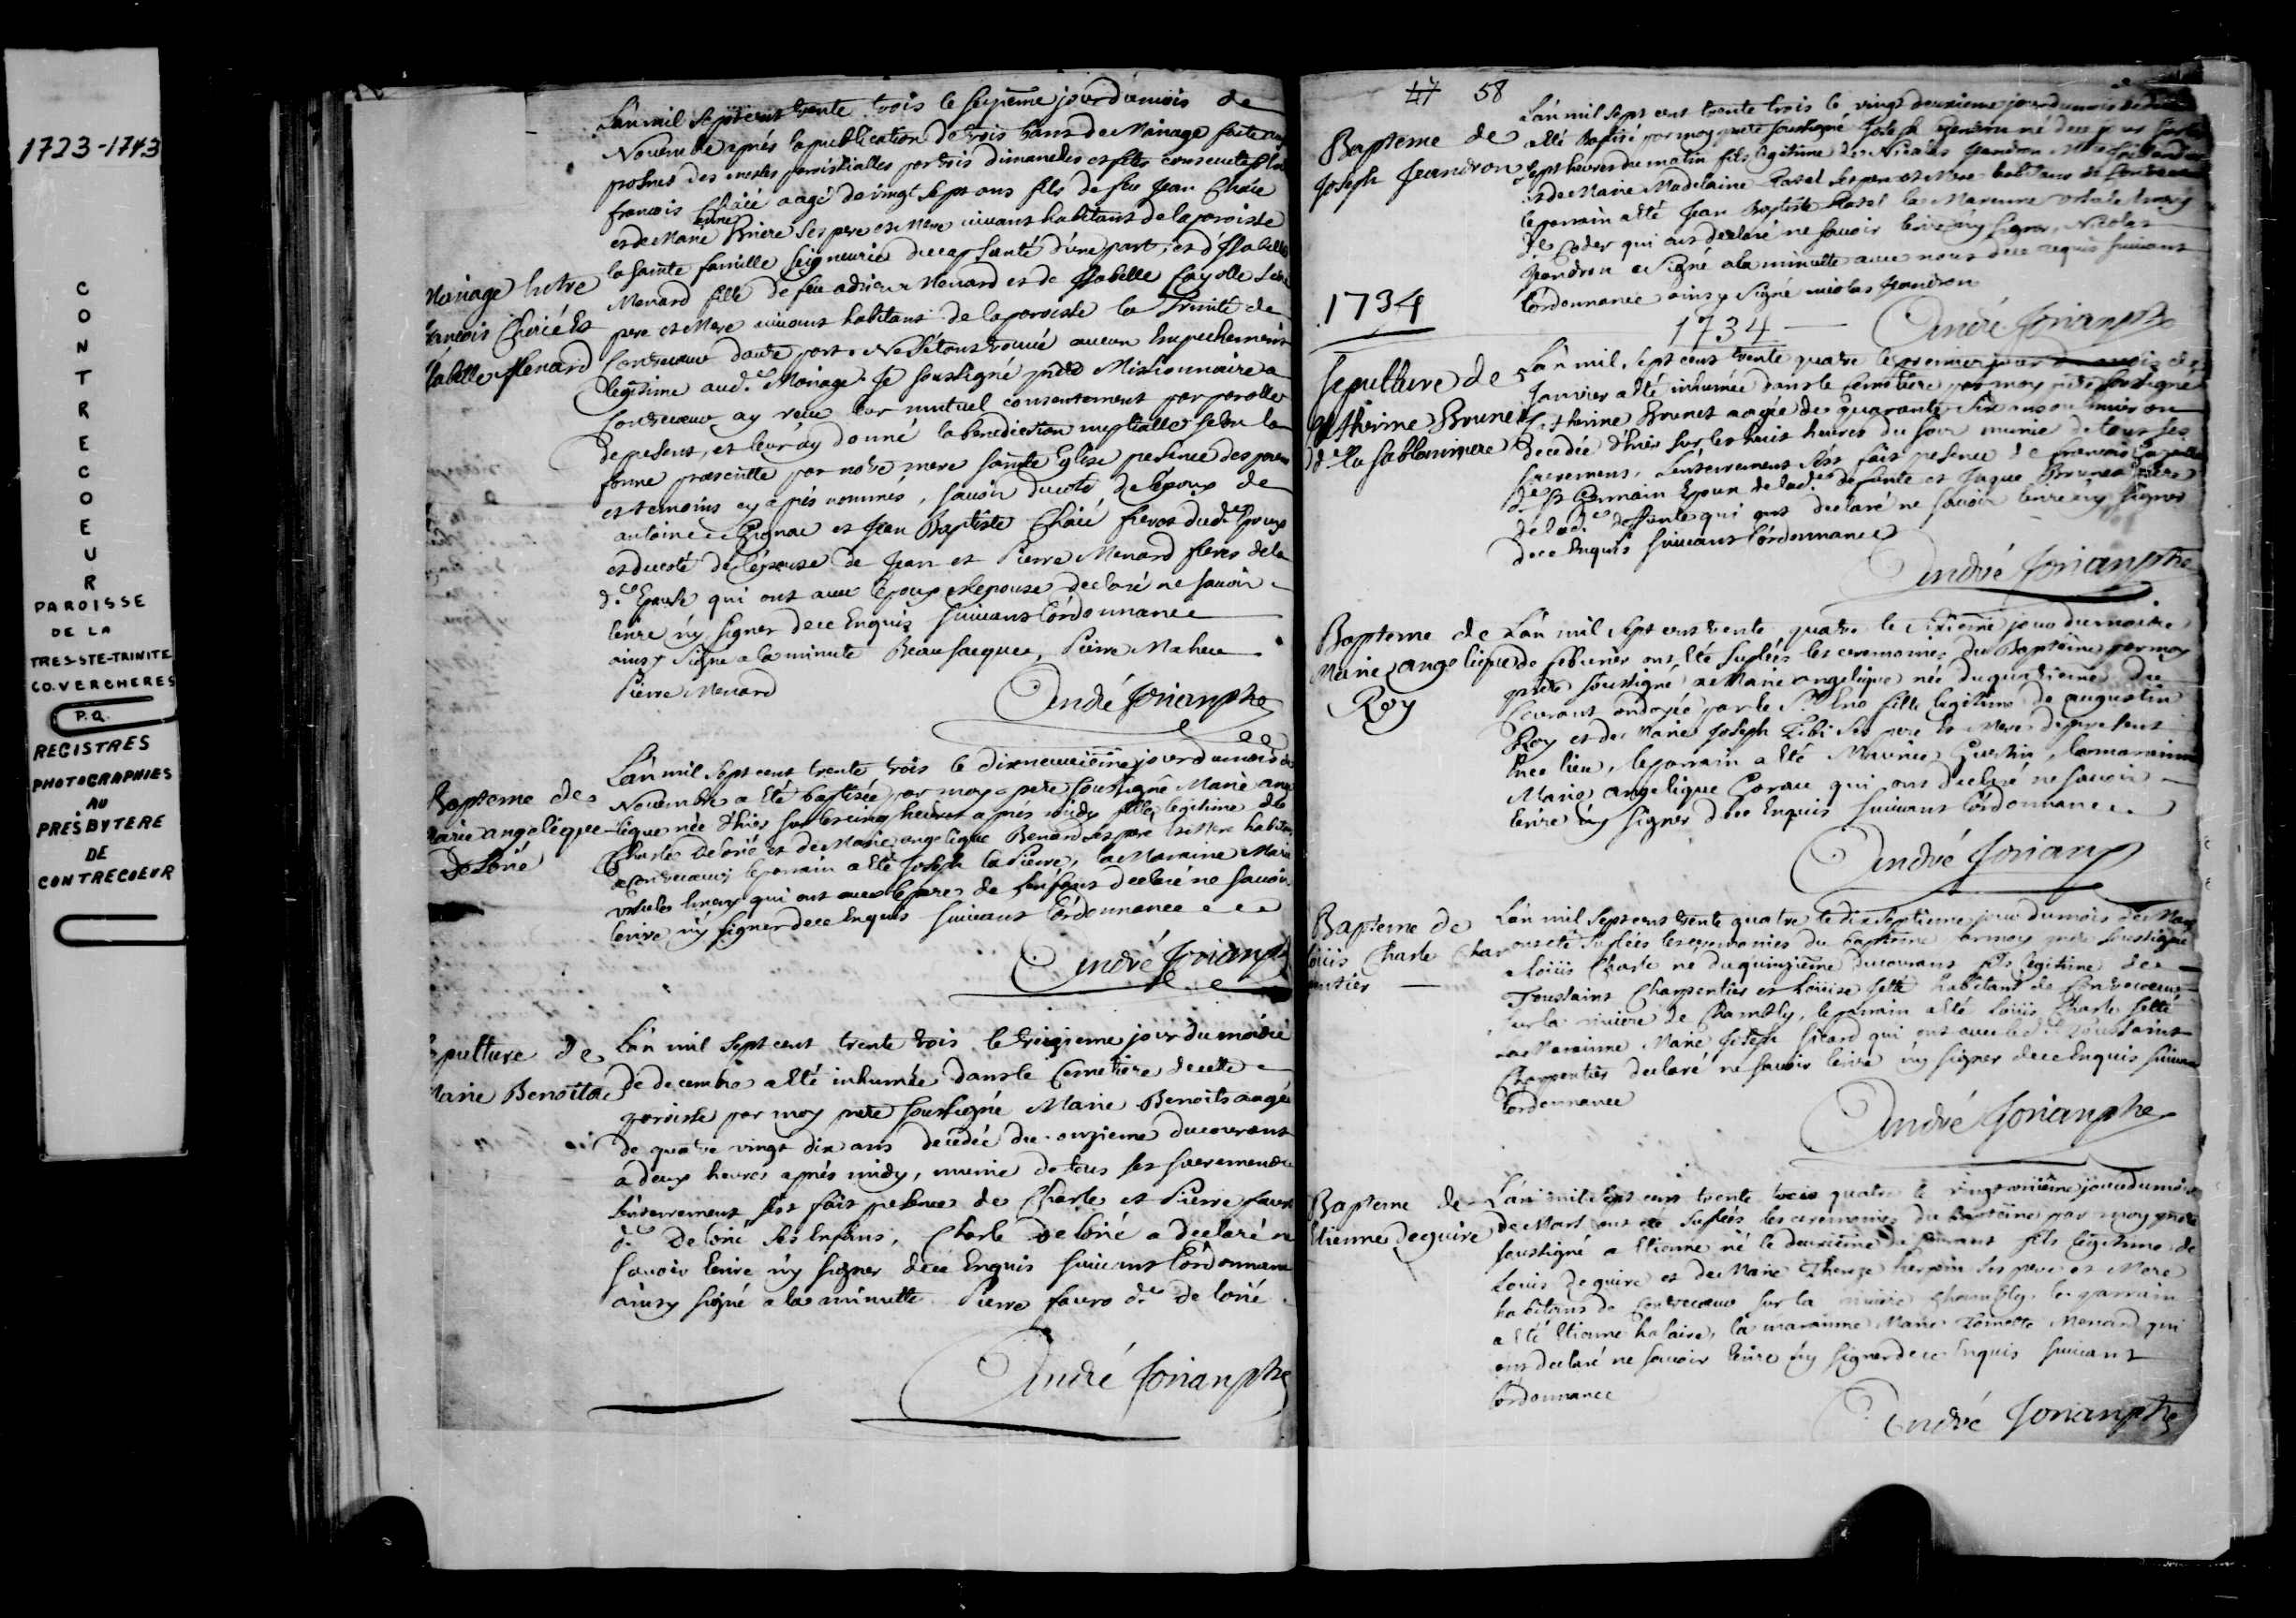 1723-1743
CONTRECOEUR
PAROISSE
DE LA
TRES-STE-TRINITE
CO. VERCHERES
P.Q.
REGISTRES
PHOTOGRAPHIES
AU
PRESBYTERE
DE
CONTRECOEUR
L'an mil sept cent trente trois le jour du mois de
Novembre aprés la publication de trois bans de Mariage faite
prosnes des messes parroissialles par trois dimanches et festes
francois Chicié aagé de vingt sept ans fils de feu Jean
et de Marie Briere ses pere et Mere vivant habitans de la paroisse
la sainte famille seigneurie d'une part, et d'Isabelle
Mariage Entre
francois Et
Isabelle Menard
Menard fille de feu adrien Menard et de Isabelle
pere et Mere vivant habitans de la paroisse la Trinité de
Contrecoeur d'autre part. Ne s'étant trouvé aucun Empechement
legitime aud. Mariage. Je soussigné pretre Missionnaire a
Contrecoeur ay receu leur mutuel consentement par parolle
de present, et leur ay donné la benediction nuptialle selon la
forme prescritte par notre mere sainte Eglise presence des
et temoins cy aprés nommés, savoir du coté de l'époux de
antoine et Jean Baptiste freres dud. Epoux
et du coté de l'épouse de Jean et Pierre Menard freres de la
d. Epouse qui ont avec l'epoux et l'epouse declaré ne savoir
ecrire n'y signer de ce Enquis suivant l'ordonnance
ainsy signé a la minute Beausacquee, Pierre Maheu
Pierre Menard
André Jorian ptre
Bapteme de
Marie angelique
Delorié
L'an mil sept cent trente trois le dixneuvième jour du mois de
Novembre a été baptisée par moy pretre soussigné Marie ange
lique née d'hier sur les cinq heures aprés midy fille legitime de
Charle Delorié et de Marie angelique Benard ses pere Et Mere habitans
de Contrecoeur, le parrain a été Joseph la Pierre, la Maraine Marie
qui ont avec le pere de l'enfant declaré ne savoir
ecrire n'y signer de ce Enquis suivant l'ordonnance
André Jorian ptre
Sepulture de
Marie Benoitte
L'an mil sept cent trente trois le treizieme jour du mois
de decembre a été inhumée dans le Cemetiere de cette
paroisse par moy pretre soussigné Marie Benoits aagée
de quatre vingt dix ans decedée du onzieme du courant
a deux heures aprés midy, munie de tous ses sacremens
l'enterrement s'est fait presence de Charle et Pierre favro
d. De lorié ses Enfans, Charle De lorié a declaré ne
savoir ecrire n'y signer de ce Enquis suivant l'ordonnance
ainsy signé a la minutte. Pierre favro d. de lorié
André Jorian ptre
47 58
Bapteme de
Joseph Jeandron
L'an mil sept cent trente trois le vingt deuxieme jour du mois de
a été Baptisé par moy pretre soussigné Joseph né de ce jour sur les
sept heures du matin fils legitime de Nicolas Jeandron
et de Marie Madelaine ses pere et Mere habitans de
le parrain a été Jean Baptiste la Maraine
qui ont declaré ne savoir ecrire n'y signer, Nicolas
Jeandron a Signé a la minutte avec nous de ce requis suivant
l'ordonnance ainsy signé nicolas Jeandron
André Jorian ptre
1734
1734
Sepulture de
Catherine Brunet
d. la sablonniere
L'an mil sept cent trente quatre le premier jour du mois de
Janvier a été inhumée dans le Cemetiere par moy pretre soussigné
Catherine Brunet aagée de quarante six ans ou Environ
decedée d'hier sur les huit heures du soir munie de tous ses
sacremens, l'enterrement s'est fait presence de francois
d. St Germain Epoux de lad. defunte et Jaque Brunet
de lad. deffunte qui ont declaré ne savoir ecrire n'y signer
de ce Enquis suivant l'ordonnance
André Jorian ptre
Bapteme de
Marie angelique
Roy
L'an mil sept cent trente quatre le sixieme jour du mois
de febvrier ont été suplées les ceremonies du Baptême par moy
pretre soussigné a Marie angelique née du quatrieme du
courant ondoyée par le fille legitime de augustin
Roy et de Marie Joseph ses pere Et Mere de present
En ce lieu, le parrain a été Maurice la maraine
Marie angelique qui ont declaré ne savoir
ecrire n'y signer de ce Enquis suivant l'ordonnance.
André Jorian p
Bapteme de
louis Charle Char
pentier
L'an mil sept cent trente quatre le dix septieme jour du mois de Mars
ont été suplées les ceremonies du baptême par moy pretre soussigné
a loüis Charle né du quinzieme du courant fils legitime de
Toussaint Charpentier et loüise habitant de Contrecoeur
sur la riviere de Chambly, le parrain a été loüis Charle
la Maraine Marie Joseph Sicard qui ont avec led. Toussaint
Charpentier declaré ne savoir ecrire n'y signer de ce Enquis suivant
l'ordonnance
André Jorian ptre
Bapteme de
Etienne Deguire
L'an mil sept cent trente trois quatre le vingt onzième jour du mois
de Mars ont été suplées les ceremonies du Baptême par moy pretre
soussigné a Etienne né le deuxième du courant fils legitime de
Louis Deguire et de Marie Therese ses pere et Mere
habitans de Contrecoeur sur la riviere Chambly. le parrain
a été Etienne la maraine Marie Menard qui
ont declaré ne savoir ecrire n'y signer de ce Enquis suivant
l'ordonnance
André Jorian ptre